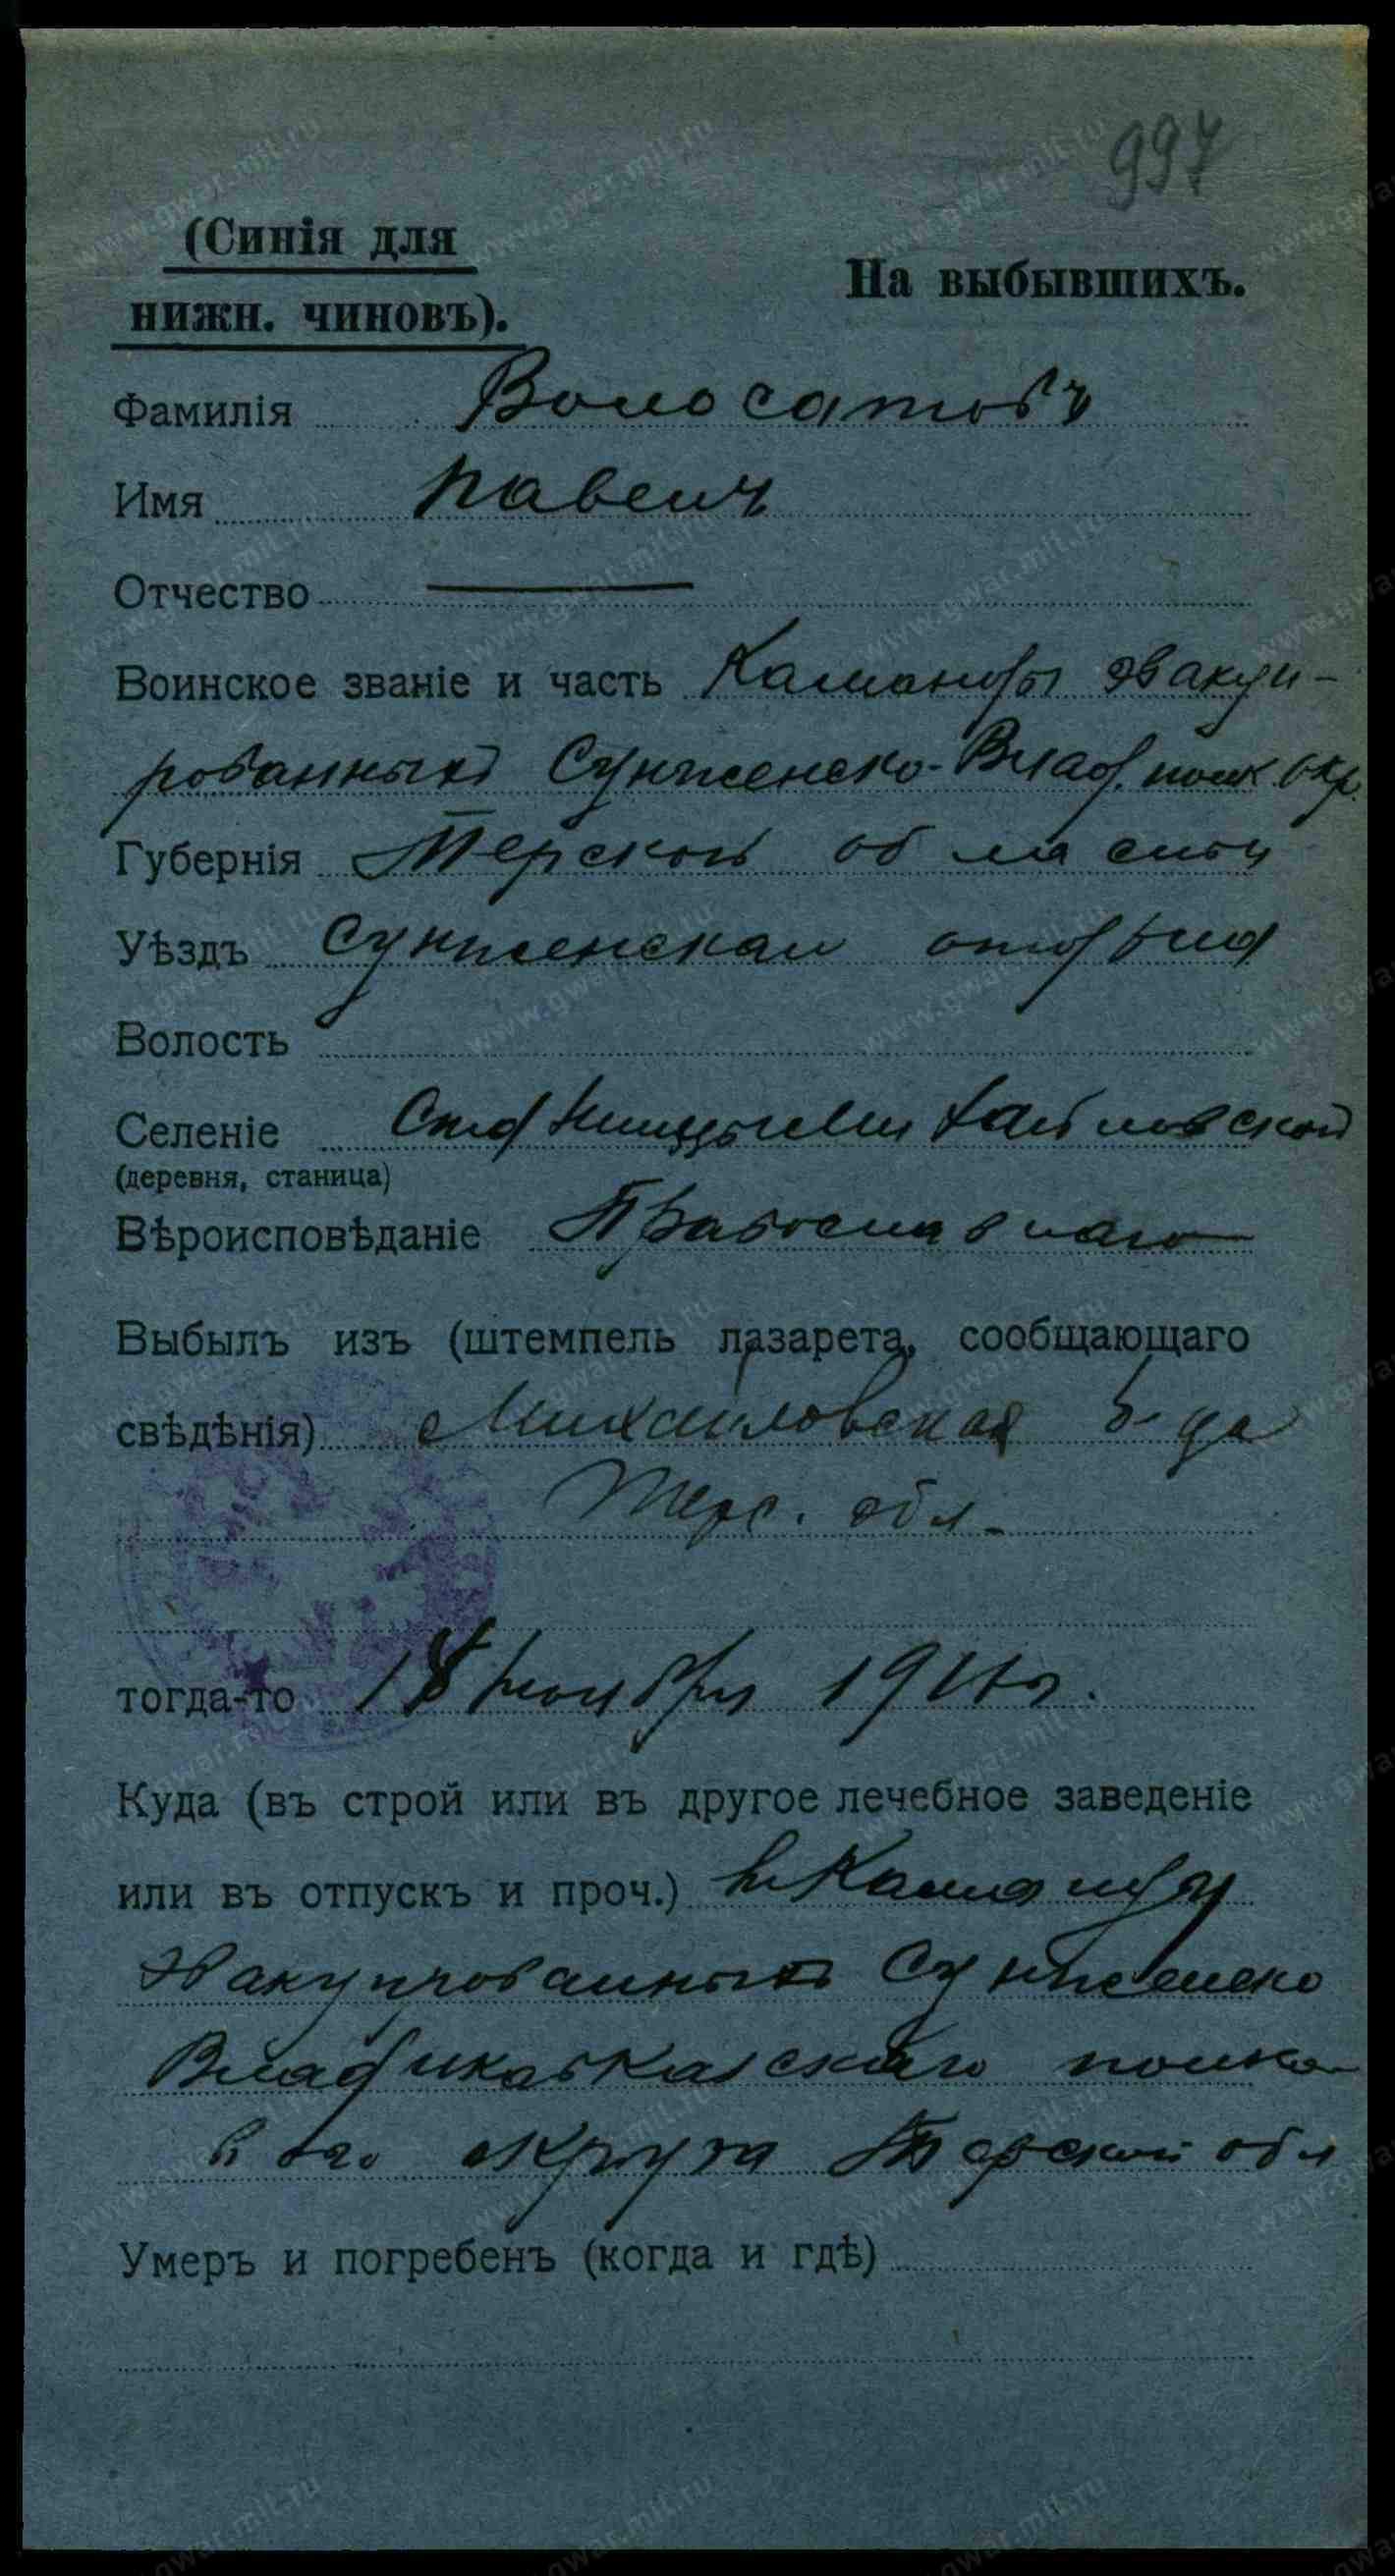 997
(Синія для
На выбывшихъ.
нижн. чиновъ).
Фамилія Волосатовъ
Имя Павелъ
Отчество —
Воинское званіе и часть Каманды эвакуи-
рованныхъ Сунженско-Влад. полк. окр.
Губернія Терской области
Уѣздъ Сунженскаи отдѣла
Волость
Селеніе Михайловской
(деревня, станица)
Вѣроисповѣданіе Православнаго
Выбылъ изъ (штемпель лазарета, сообщающаго
свѣдѣнія) Михайловская б-ца
Терс. обл.
тогда-то 18 ноября
Куда (въ строй или въ другое лечебное заведеніе
или въ отпускъ и проч.) въ Каманду
Эвакуированныхъ Сунженско
Владикавказскаго полко
вого округа Терской обл
Умеръ и погребенъ (когда и гдѣ)
www.gwar.mil.ru